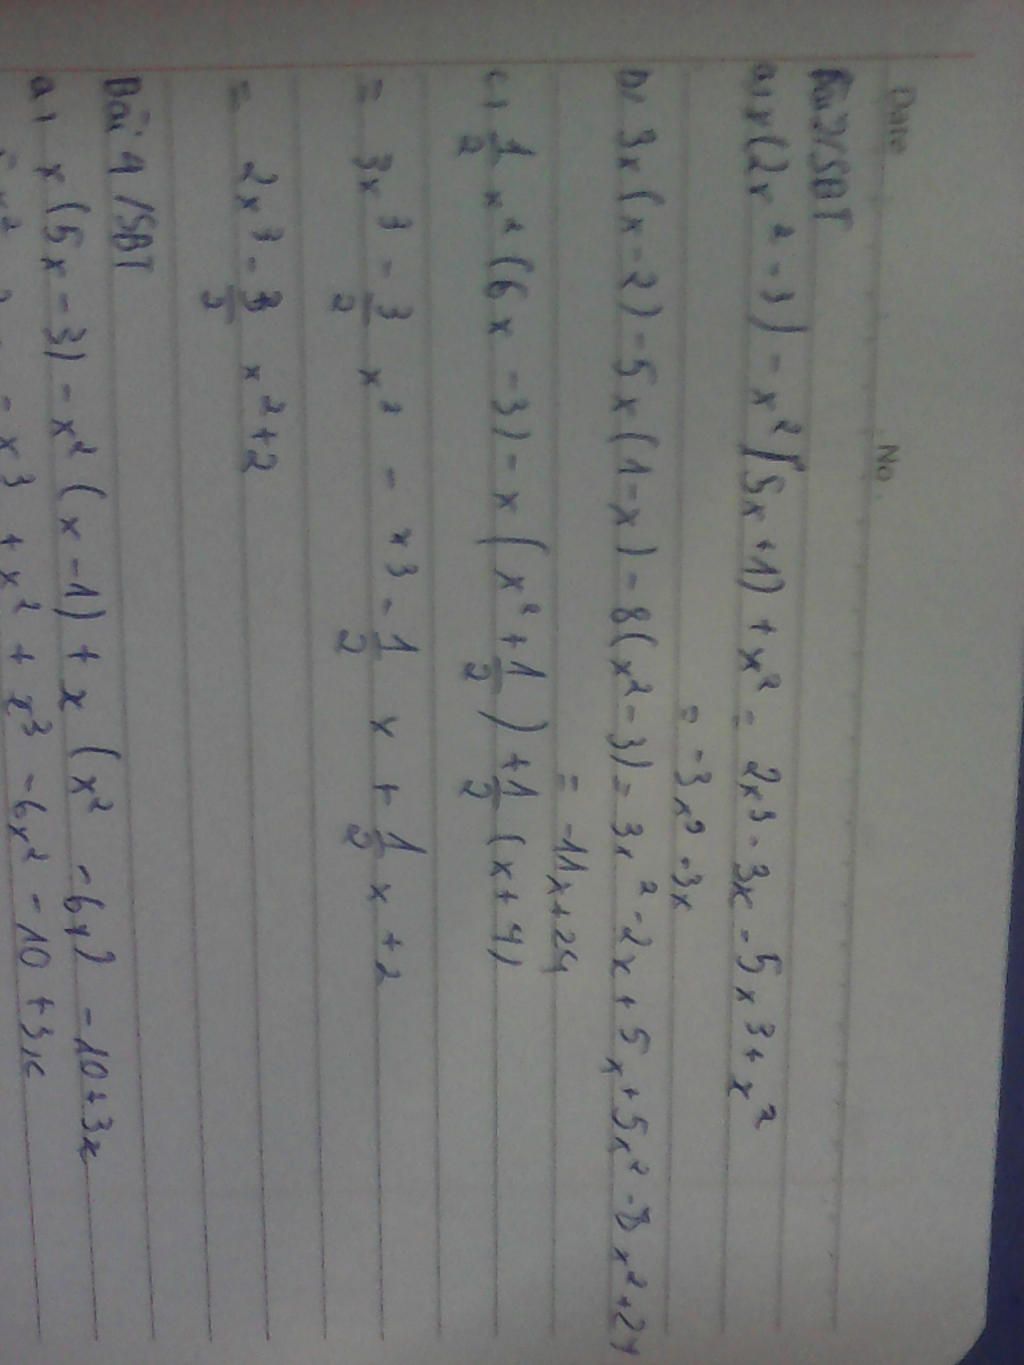 Date No.
Bài 2/SBT
a, x(2x² - 3) - x²(5x + 1) + x² = 2x³ - 3x - 5x³ + x²
= -3x³ - 3x
b, 3x(x - 2) - 5x(1 - x) - 8(x² - 3) = 3x² - 2x + 5x + 5x² - 8x² + 24
= -11x + 24
c, 1/2 x² (6x - 3) - x(x² + 1/2) + 1/2 (x + 4)
= 3x³ - 3/2 x² - x3 - 1/2 x + 1/2 x + 2
= 2x³ - 3/2 x² + 2
Bài 4/SBT
a, x(5x - 3) - x²(x - 1) + x(x² - 6x) - 10 + 3x
- x³ + x² + x³ - 6x² - 10 + 3x